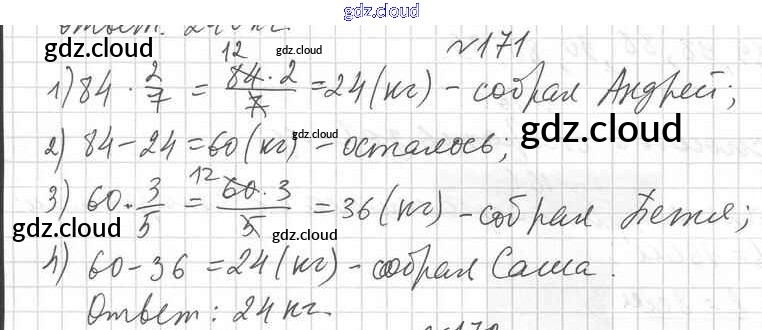 gdz.cloud
Ответ: 240 кг.
gdz.cloud gdz.cloud №171
1) 84 · 2/7 = 84 · 2/7 (12) = 24 (кг) – собрал Андрей;
2) 84 – 24 = 60 (кг) – осталось;
gdz.cloud gdz.cloud
3) 60 · 3/5 = 60 · 3/5 (12) = 36 (кг) – собрал
gdz.cloud gdz.cloud
4) 60 – 36 = 24 (кг) – собрал Саша.
Ответ: 24 кг.